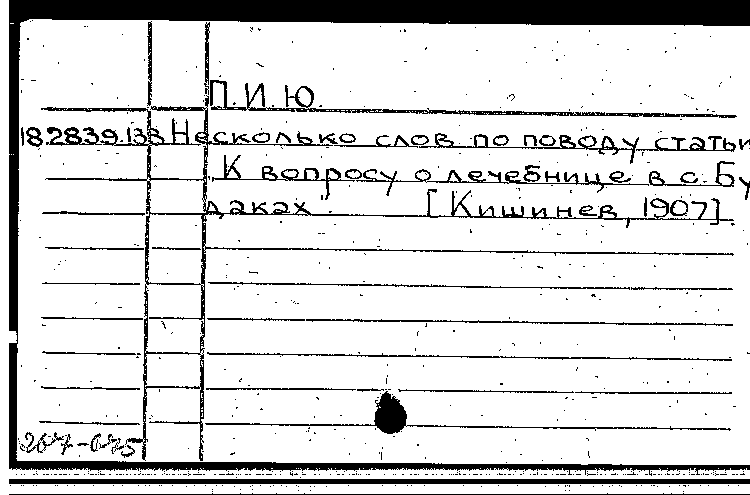 П. И. Ю.
18.2839.133 Несколько слов по поводу статьи
"К вопросу о лечебнице в с. Бу
даках". [Кишинев, 1907].
267-675